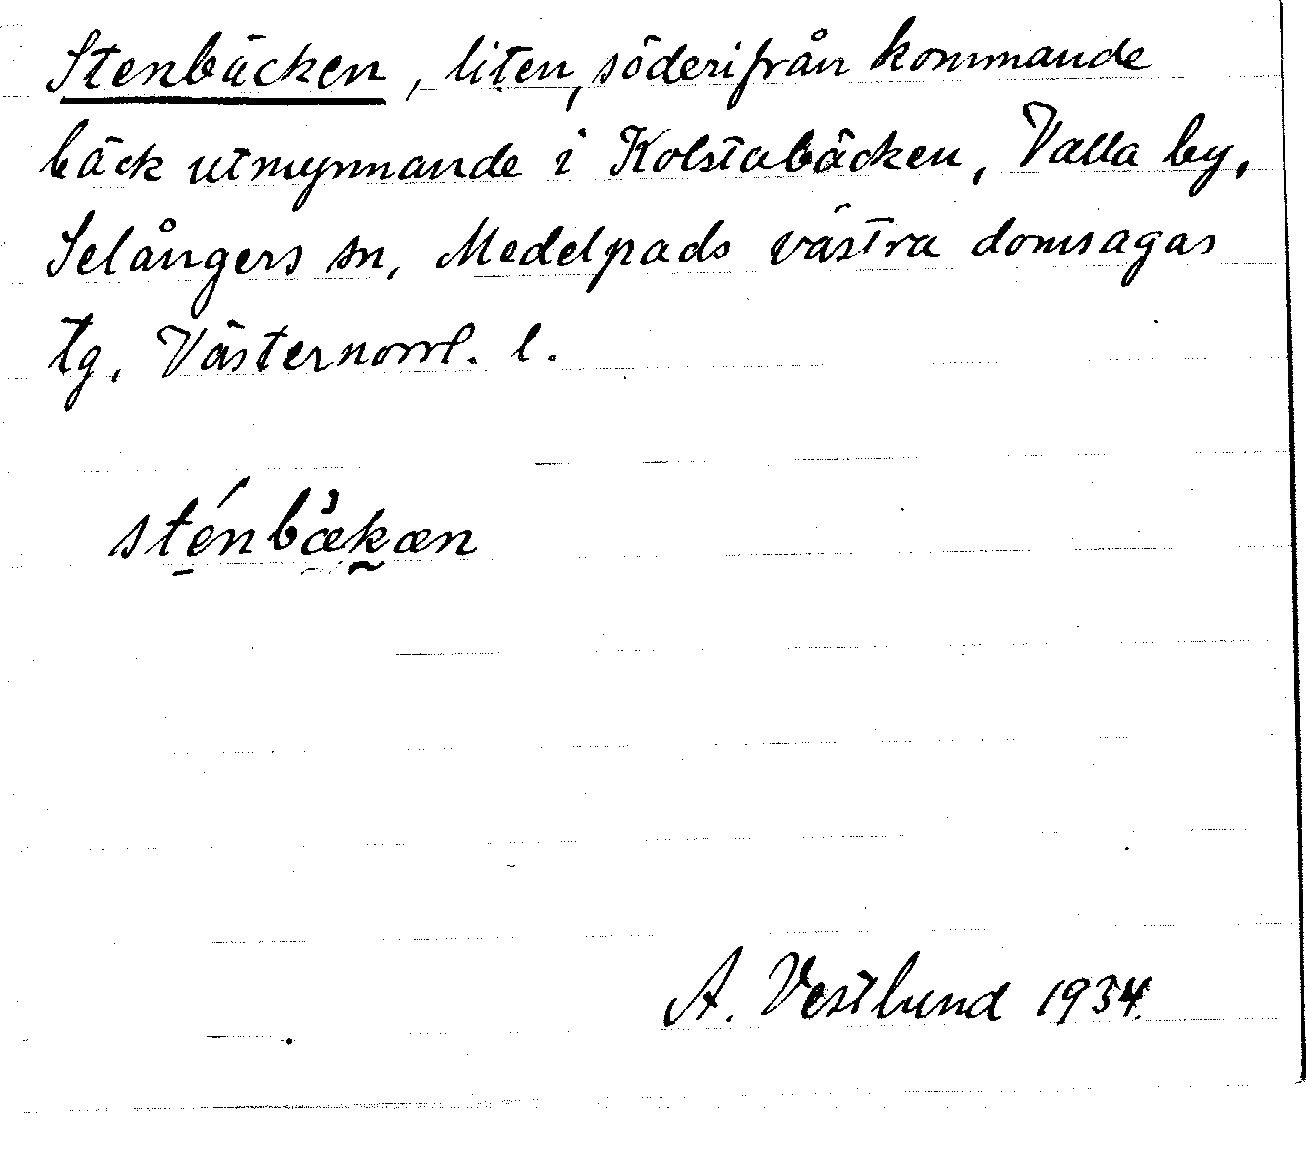 Stenbäcken, liten, söderifrån kommande
bäck utmynnande i Kolstabäcken, Valla by,
Selångers sn, Medelpads västra domsagas
tg, Västernorrl. l.
sténbækæn
A. Vestlund 1934.